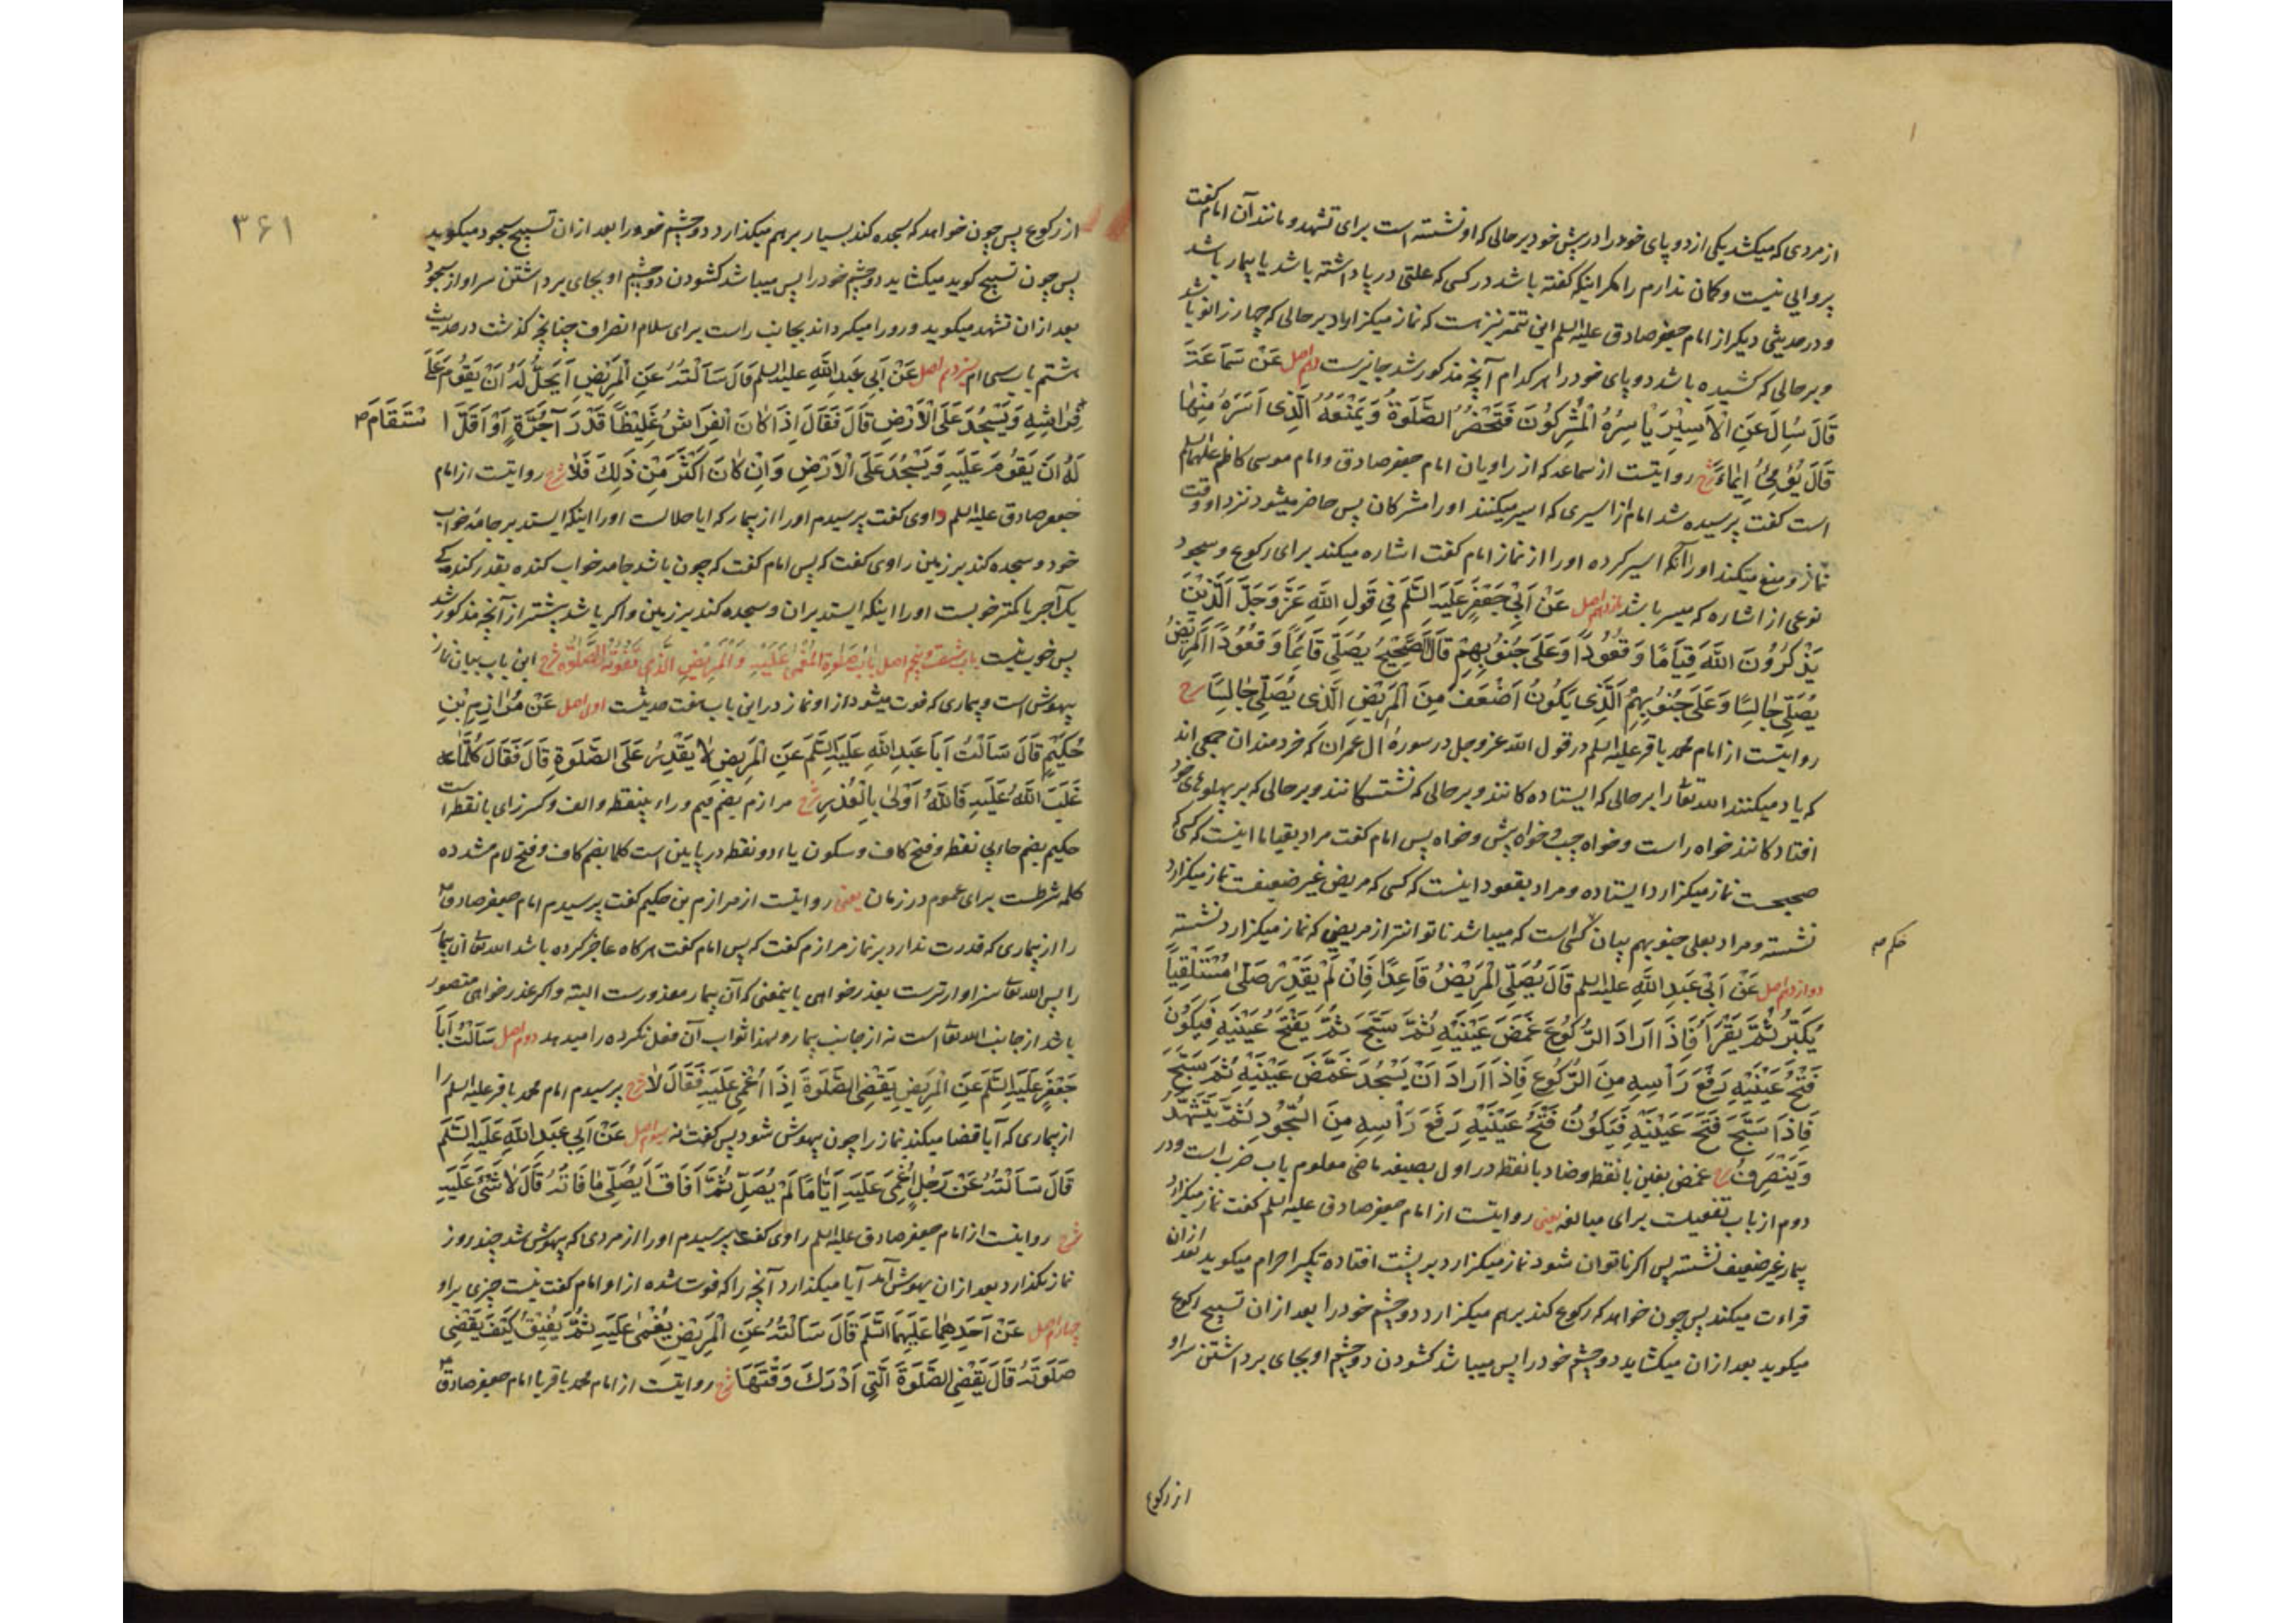 از مردی که میکشد یکی از دو پای خود را در پیش خود بر حالی که او نشسته است برای تشهد و مانند آن امام گفت
پروایی نیست و کمان ندارم را مکر اینکه کفته باشد در کسی که علتی در پا داشته باشد یا بیمار باشد
و در حدیثی دیکر از امام جعفر صادق علیه السلم این تتمه نیز هست که نماز میکزارد بر حالی که چهار زانو باشد
و بر حالی که کشیده باشد دو پای خود را هر کدام آنچه مذکور شد جایز است دهم اصل عَنْ سَمَاعَةَ
قَالَ سُئِلَ عَنِ الْاَسِيْرِ يَأْسِرُهُ الْمُشْرِكُونَ فَتَحْضُرُ الصَّلَوةُ وَيَمْنَعُهُ الَّذِى اَسَرَهُ مِنْهَا
قَالَ يُوْمِئُ اِيْمَاءً شرح روایتست از سماعه که از راویان امام جعفر صادق و امام موسی کاظم علیهما السلم
است کفت پرسیده شد امام از اسیری که اسیر میکنند او را مشرکان پس حاضر میشود نزد او وقت
نماز و منع میکند او را آنکه اسیر کرده او را از نماز امام کفت اشاره میکند برای رکوع و سجود
نوعی از اشاره که میسر باشد یازدهم اصل عَنْ اَبِيْ جَعْفَرٍ عَلَيْهِ السَّلَمُ فِي قَوْلِ اللهِ عَزَّ وَجَلَّ الَّذِيْنَ
يَذْكُرُونَ اللهَ قِيَامًا وَقُعُودًا وَعَلَى جُنُوبِهِمْ قَالَ الصَّحِيْحُ يُصَلِّي قَائِمًا وَقُعُودًا الْمَرِيْضُ
يُصَلِّي جَالِسًا وَعَلَى جُنُوبِهِمُ الَّذِى يَكُونُ اَضْعَفَ مِنَ الْمَرِيْضِ الَّذِى يُصَلِّي جَالِسًا شرح
روایتست از امام محمد باقر علیه السلم در قول الله عز و جل در سوره ال عمران که خردمندان جمعی اند
که یاد میکنند الله تعالی را بر حالی که ایستاده کانند و بر حالی که نشسته کانند و بر حالی که بر پهلوهای خود
افتاده کانند خواه راست و خواه چپ و خواه پیش و خواه پس امام کفت مراد بقیاما اینست که کسی که
صحیحست نماز میکزارد ایستاده و مراد بقعود اینست که کسی که مریض غیر ضعیفست نماز میکزارد
نشسته و مراد بعلی جنوبهم بیان کسی است که میباشد ناتوانتر از مریضی که نماز میکزارد نشسته
حکم
دوازدهم اصل عَنْ اَبِيْ عَبْدِ اللهِ علیه السلم قَالَ يُصَلِّي الْمَرِيْضُ قَاعِدًا فَاِنْ لَمْ يَقْدِرْ صَلَّى مُسْتَلْقِيًا
يُكَبِّرُ ثُمَّ يَقْرَأُ فَاِذَا اَرَادَ الرُّكُوْعَ غَمَضَ عَيْنَيْهِ ثُمَّ سَبَّحَ ثُمَّ يَفْتَحُ عَيْنَيْهِ فَيَكُوْنَ
فَتْحُ عَيْنَيْهِ رَفْعَ رَأْسِهِ مِنَ الرُّكُوْعِ فَاِذَا اَرَادَ اَنْ يَسْجُدَ غَمَّضَ عَيْنَيْهِ ثُمَّ سَبَّحَ
فَاِذَا سَبَّحَ فَتَحَ عَيْنَيْهِ فَيَكُوْنُ فَتْحُ عَيْنَيْهِ رَفْعَ رَأْسِهِ مِنَ السُّجُوْدِ ثُمَّ يَتَشَهَّدُ
وَيَنْصَرِفُ شرح غمض بغین بانقطه و ضاد بانقطه در اول بصیغه ماضی معلوم باب ضرب است و در
دوم از باب تفعیلست برای مبالغه یعنی روایتست از امام جعفر صادق علیه السلم کفت نماز میکزارد
بیمار غیر ضعیف نشسته پس اکر ناتوان شود نماز میکزارد بر پشت افتاده تکبیر احرام میکوید بعد از ان
قراءت میکند پس چون خواهد که رکوع کند بر هم میکزارد دو چشم خود را بعد از ان تسبیح رکوع
میکوید بعد از ان میکشاید دو چشم خود را پس میباشد کشودن دو چشم او بجای برداشتن سر او
از رکوع
۳۶۱
از رکوع پس چون خواهد که سجده کند بسیار بر هم میکذارد دو چشم خود را بعد از ان تسبیح سجود میکوید
پس چون تسبیح کوید میکشاید دو چشم خود را پس میباشد کشودن دو چشم او بجای برداشتن سر او از سجود
بعد از ان تشهد میکوید و رو را میکرداند بجانب راست برای سلام انصراف چنانچه کذشت در حدیث
هشتم باب سی ام سیزدهم اصل عَنْ اَبِي عَبْدِ اللهِ علیه السلم قَالَ سَاَلْتُهُ عَنِ الْمَرِيْضِ اَيَحِلُّ لَهُ اَنْ يَقُوْمَ عَلَى
فِرَاشِهِ وَيَسْجُدَ عَلَى الْاَرْضِ قَالَ فَقَالَ اِذَا كَانَ الْفِرَاشُ غَلِيْظًا قَدْرَ آجُرَّةٍ اَوْ اَقَلَّ اسْتَقَامَ
لَهُ اَنْ يَقُوْمَ عَلَيْهِ وَيَسْجُدَ عَلَى الْاَرْضِ وَاِنْ كَانَ اَكْثَرَ مِنْ ذَلِكَ فَلَا شرح روایتست از امام
جعفر صادق علیه السلم راوی کفت پرسیدم او را از بیمار که ایا حلالست او را اینکه ایستد بر جامه خواب
خود و سجده کند بر زمین راوی کفت که پس امام کفت که چون باشد جامه خواب کنده بقدر کندکی
یک آجر یا کمتر خوبست او را اینکه ایستد بران و سجده کند بر زمین و اکر باشد بیشتر از آنچه مذکور شد
پس خوب نیست باب شصت و پنجم اصل بَابُ صَلَوةِ الْمُغْمَى عَلَيْهِ وَالْمَرِيْضِ الَّذِى تَفُوْتُهُ الصَّلَوةُ شرح این باب بیان نماز
بیهوش است و بیماری که فوت میشود از او نماز در این باب هفت حدیثست اول اصل عَنْ مُرَازِمِ بْنِ
حُكَيْمٍ قَالَ سَاَلْتُ اَبَا عَبْدِ اللهِ عَلَيْهِ السَّلَمُ عَنِ الْمَرِيْضِ لَا يَقْدِرُ عَلَى الصَّلَوةِ قَالَ فَقَالَ كُلَّمَا
غَلَبَ اللهُ عَلَيْهِ فَاللهُ اَوْلَى بِالْعُذْرِ شرح مرازم بضم میم و راء بینقطه و الف و کسر زای بانقطه است
حکیم بضم حاء بی نقطه و فتح کاف و سکون یاء دو نقطه در پایین است کلما بضم کاف و فتح لام مشدده
کلمه شرطست برای عموم در زمان یعنی روایتست از مرازم بن حکیم کفت پرسیدم امام جعفر صادق
را از بیماری که قدرت ندارد بر نماز مرازم کفت که پس امام کفت هر کاه عاجز کرده باشد الله تعالی آن بیمار
را پس الله تعالی سزاوارترست بعذر خواهی باینمعنی که آن بیمار معذورست البته و اکر عذر خواهی متصور
باشد از جانب الله تعالی است نه از جانب بیمار و لهذا ثواب آن فعل نکرده را میدهد دوم اصل سَاَلْتُ اَبَا
جَعْفَرٍ عَلَيْهِ السَّلَمُ عَنِ الْمَرِيْضِ يَقْضِي الصَّلَوةَ اِذَا اُغْمِيَ عَلَيْهِ فَقَالَ لَا شرح پرسیدم امام محمد باقر علیه السلم را
از بیماری که آیا قضا میکند نماز را چون بیهوش شود پس کفت نه سیوم اصل عَنْ اَبِي عَبْدِ اللهِ عَلَيْهِ السَّلَمُ
قَالَ سَاَلْتُهُ عَنْ رَجُلٍ اُغْمِيَ عَلَيْهِ اَيَّامًا لَمْ يُصَلِّ ثُمَّ اَفَاقَ اَيُصَلِّي مَا فَاتَهُ قَالَ لَا شَيْءَ عَلَيْهِ
شرح روایتست از امام جعفر صادق علیه السلم راوی کفت پرسیدم او را از مردی که بیهوش شد چند روز
نماز نکذارد بعد از ان بهوش آمد آیا میکذارد آنچه را که فوت شده از او امام کفت نیست چیزی بر او
چهارم اصل عَنْ اَحَدِهِمَا عَلَيْهِمَا السَّلَمُ قَالَ سَاَلْتُهُ عَنِ الْمَرِيْضِ يُغْمَى عَلَيْهِ ثُمَّ يُفِيْقُ كَيْفَ يَقْضِي
صَلَوتَهُ قَالَ يَقْضِي الصَّلَوةَ الَّتِي اَدْرَكَ وَقْتَهَا شرح روایتست از امام محمد باقر یا امام جعفر صادق